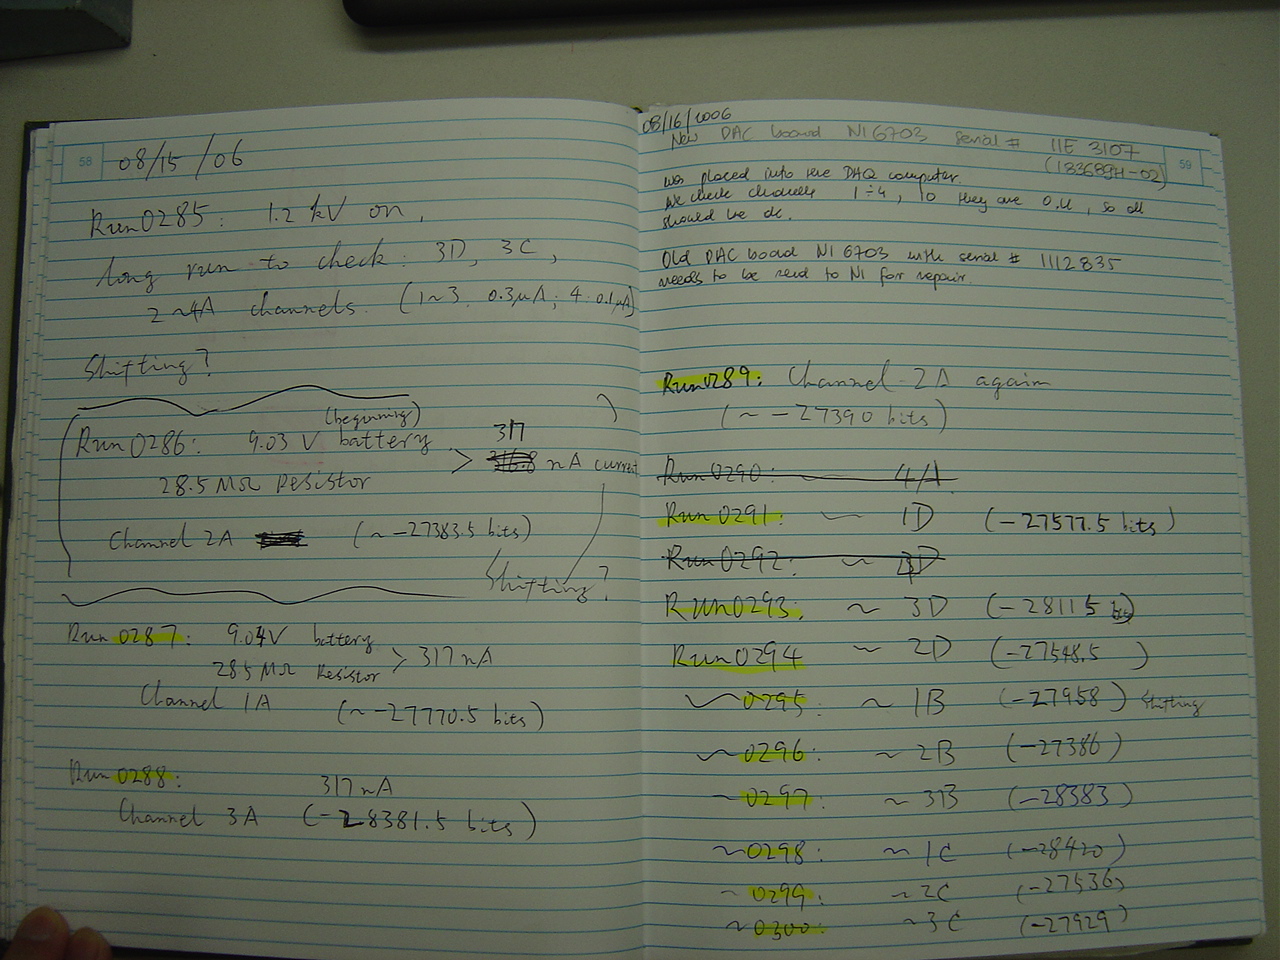 58
08/15/06
Run0285: 1.2 kV on,
long run to check: 3D, 3C,
2~4A channels. (1~3 0.3μA; 4: 0.1μA)
Shifting?
(beginning)
Run0286: 9.03 V battery > 317 nA current
28.5 MΩ Resistor
Channel 2A (~ -27383.5 bits)
Shifting?
Run 0287: 9.04V battery > 317 nA
28.5 MΩ Resistor
Channel 1A (~ -27770.5 bits)
Run 0288: 317 nA
Channel 3A (-28381.5 bits)
08/16/2006
New DAC board NI 6703 serial # 11E 3107
(183689H-02)
59
was placed into the DAQ computer.
We check channels 1÷4, 10 they are O.K, so all
should be ok.
Old DAC board NI 6703 with serial # 1112835
needs to be send to NI for repair.
Run0289: Channel 2A again
(~ -27390 bits)
Run0290: — 4A
Run0291: ~ 1D (-27577.5 bits)
Run0292: ~ D
Run0293: ~ 3D (-28115 bits)
Run0294 ~ 2D (-27548.5 )
~ 0295: ~ 1B (-27958) Shifting
~ 0296: ~ 2B (-27386)
~ 0297: ~ 3B (-28383)
~ 0298: ~ 1C (-28420)
~ 0299: ~ 2C (-27536)
~ 0300: ~ 3C (-27929)